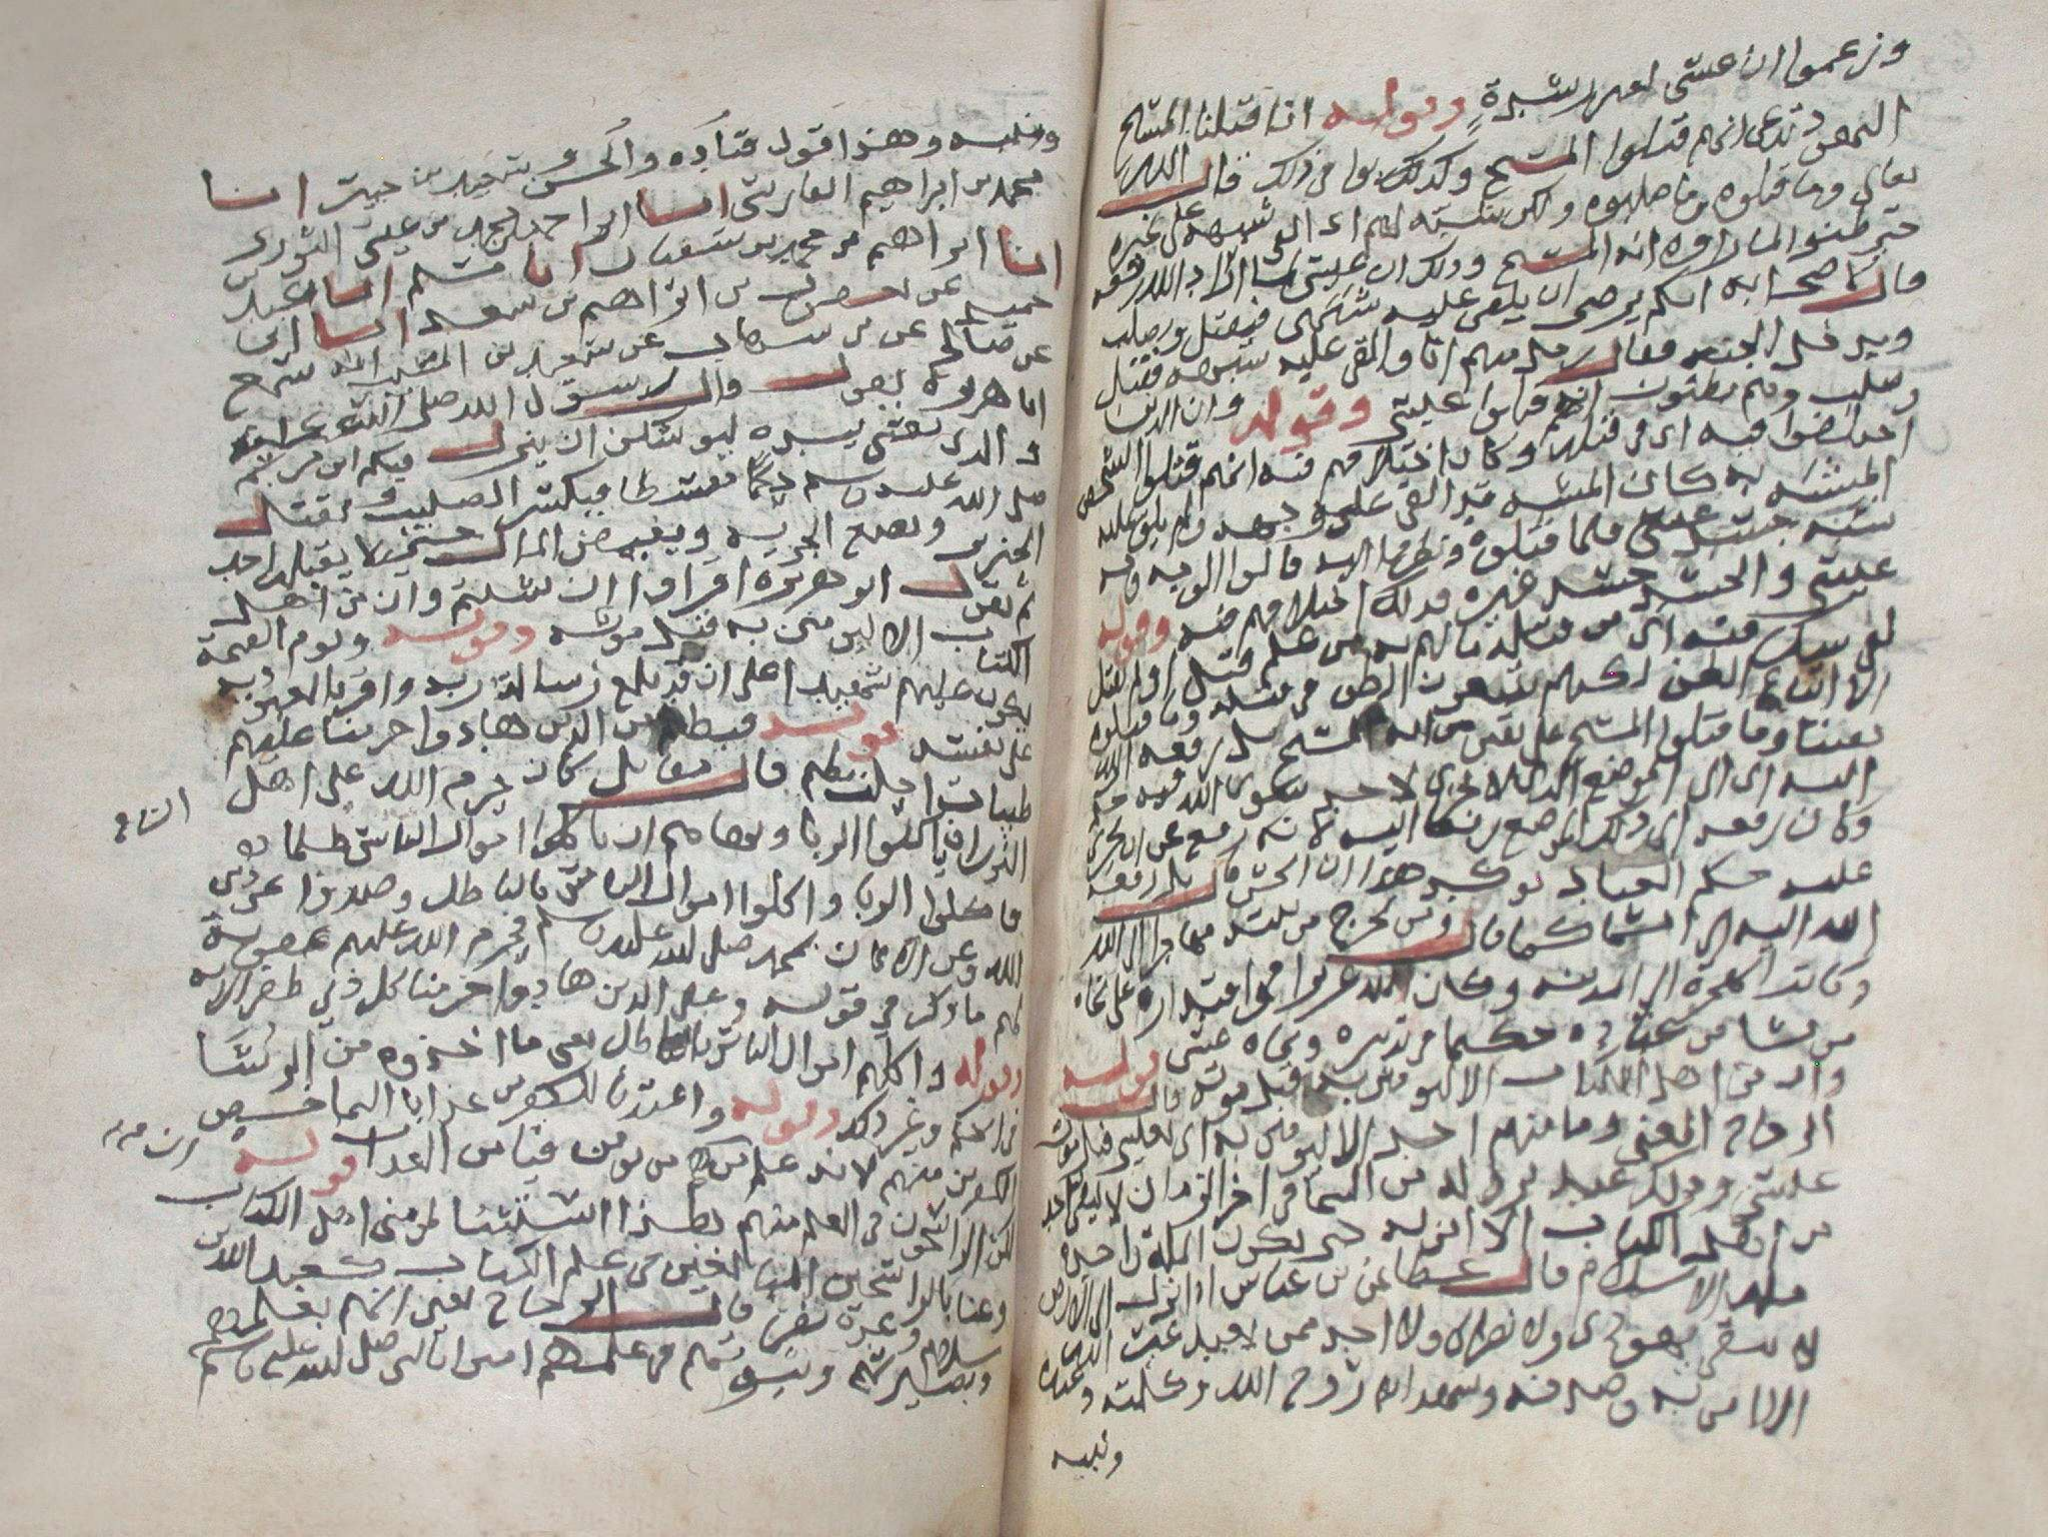 وزعموا ان عيسى لغير رشدة وقوله انا قتلنا المسيح
اليهود تدعى انهم قتلوا المسيح وكذلك في ذلك قال الله
تعالى وما قتلوه وما صلبوه ولكن شبه لهم اى القى شبهه على غيره
حتى ظنوا لما راوه انه المسيح وذلك ان عيسى لما اراد الله رفعه
قال لاصحابه ايكم يرضى ان يلقى عليه شبهى فيقتل ويصلب
ويدخل الجنة فقال رجل منهم انا والقى عليه شبهه فقتل
وصلب وهم يظنون انهم قتلوا عيسى وقوله وان الذين
اختلفوا فيه اى فى قتله وكان اختلافهم فيه انهم قتلوا الشخص
المشبه به كان الشبه قد القى على وجهه ولم يلق عليه
شبه جسد عيسى فلما قتلوه ونظروا اليه قالوا الوجه وجه
عيسى والجسد جسد غيره فذلك اختلافهم فيه وقوله
لفى شك منه اى من قتله ما لهم به من علم قتل او لم يقتل
الا اتباع الظن لكنهم يتبعون الظن فى قتله وما قتلوه
يقينا وما قتلوا المسيح على يقين من انه المسيح بل رفعه الله
اليه اى الى الموضع الذى لا يجرى لاحد سوى الله فيه حكم
وكان رفعه الى ذلك الموضع رفعا اليه لانه رفع عن ان يجرى
عليه حكم العباد يوكد هذا ان الحسن قال بل رفعه
الله اليه الى السما كما قال ومن يخرج من بيته مهاجرا الى الله
وكانت الهجرة الى المدينة وكان الله عزيزا فى اقتداره على نجاة
من يشا من عباده حكيما فى تدبيره ونجاة عيسى قوله
وان من اهل الكتاب الا ليومنن به قبل موته قال
الزجاج المعنى وما منهم احد الا ليومنن به اى بعيسى قبل موت
عيسى وذلك عند نزوله من السما فى اخر الزمان لا يبقى احد
من اهل الكتاب الا امن به حتى تكون الملة واحدة
ملة الاسلام قال عطا عن بن عباس اذا نزل الى الارض
لا يبقى يهودى ولا نصرانى ولا احد ممن يعبد غير الله
الا امن به وصدقه وشهد انه روح الله وكلمته وعبده
ونبيه
ونبيه وهذا قول قتاده والحسن وسعيد بن جبير انا
محمد بن ابراهيم الفارسى انا ابو احمد محمد بن عيسى الثورى
انا ابراهيم بن محمد بن سفيان انا مسلم انا عبد بن
حميد عن يعقوب بن ابراهيم بن سعد انا ابى
عن صالح عن بن شهاب عن سعيد بن المسيب انه سمع
ابا هريرة يقول قال رسول الله صلى الله عليه
والذى نفسى بيده ليوشكن ان ينزل فيكم ابن مريم
صلى الله عليه وسلم حكما مقسطا فيكسر الصليب ويقتل
الخنزير ويضع الجزية ويفيض المال حتى لا يقبله احد
ثم يقول ابو هريرة اقراوا ان شيتم وان من اهل
الكتاب الا ليومنن به قبل موته وقوله ويوم القيمة
يكون عليهم شهيدا على ان قد بلغ رسالة ربه واقر بالعبودية
على نفسه قوله فبظلم من الذين هادوا حرمنا عليهم
طيبات احلت لهم قال مقاتل كان حرم الله على اهل
التوراة ان ياكلوا الربا ونهاهم ان ياكلوا اموال الناس ظلما
فاكلوا الربا واكلوا اموال الناس بالباطل وصدوا عن دين
الله وعن الايمان بمحمد صلى الله عليه وسلم فحرم الله عليهم عقوبة
لهم ما ذكر فى قوله وعلى الذين هادوا حرمنا كل ذى ظفر الاية
وقوله واكلهم اموال الناس بالباطل يعنى ما اخذوه من الرشا
فى الحكم وغير ذلك وقوله واعتدنا للكفرين عذابا اليما خص
الكفرين منهم لانه علم ان منهم من يومن فيامن العذاب قوله
لكن الراسخون فى العلم منهم هذا استثنا لمومنى اهل الكتاب
وعنا بالراسخين المبالغين فى علم الكتاب كعبد الله بن
سلام وعدة نفر قال الزجاج يعنى انهم بعلمهم
وبصيرتهم وثبوتهم فى علمهم امنوا بالنبى صلى الله عليه وسلم